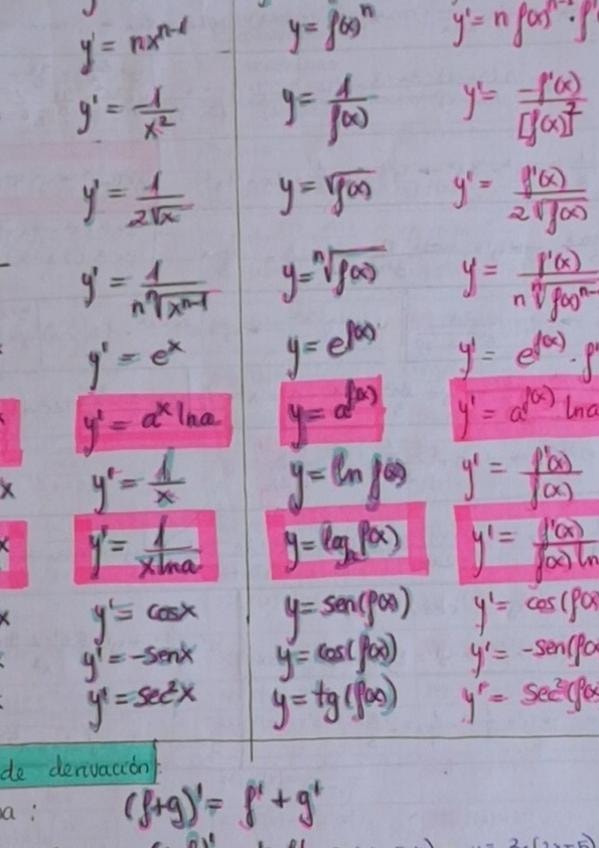 y' = nxⁿ⁻¹ y = f(x)ⁿ y' = n f(x)ⁿ⁻¹ · f'
y' = 1/x² y = 1/f(x) y' = -f'(x)/[f(x)]²
y' = 1/(2√x) y = √f(x) y' = f'(x)/(2√f(x))
y' = 1/(n ⁿ√xⁿ⁻¹) y = ⁿ√f(x) y' = f'(x)/(n ⁿ√f(x)ⁿ⁻
y' = eˣ y = e^f(x) y' = e^f(x) · f'
y' = aˣ lna y = a^f(x) y' = a^f(x) lna
x y' = 1/x y = ln f(x) y' = f'(x)/f(x)
x y' = 1/(x lna) y = logₐ f(x) y' = f'(x)/(f(x) ln
x y' = cosx y = sen(f(x)) y' = cos(f(x)
y' = -senx y = cos(f(x)) y' = -sen(f(x)
y' = sec²x y = tg(f(x)) y' = sec²(f(x)
de derivación:
a: (f+g)' = f' + g'